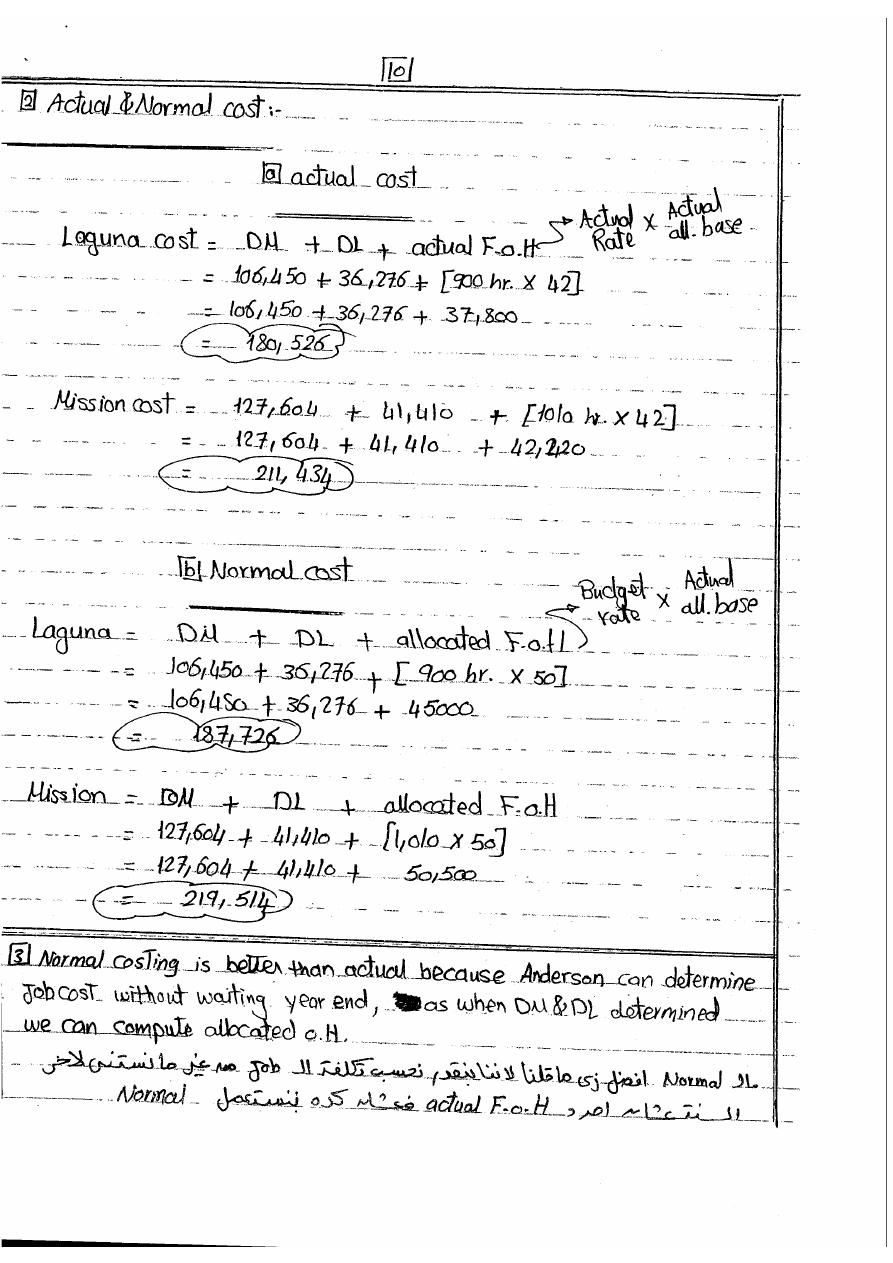 10
2 Actual & Normal cost:-
a actual cost
Laguna cost = DM + DL + actual F.o.H → Actual Rate × Actual all. base
= 106,450 + 36,276 + [900 hr. × 42]
= 106,450 + 36,276 + 37,800
= 180,526
Mission cost = 127,604 + 41,410 + [1010 hr. × 42]
= 127,604 + 41,410 + 42,420
= 211,434
b Normal cost
Laguna = DM + DL + allocated F.o.H → Budget rate × Actual all. base
= 106,450 + 36,276 + [900 hr. × 50]
= 106,450 + 36,276 + 45000
= 187,726
Mission = DM + DL + allocated F.o.H
= 127,604 + 41,410 + [1,010 × 50]
= 127,604 + 41,410 + 50,500
= 219,514
3 Normal costing is better than actual because Anderson can determine
Job cost without waiting year end, as when DM & DL determined
we can compute allocated o.H.
الـ Normal افضل زى ما قلنا لاننا بنقدر نحسب تكلفة الـ Job من غير ما نستنى لاخر
السنة عشان احدد actual F.o.H فعشان كده بنستعمل Normal